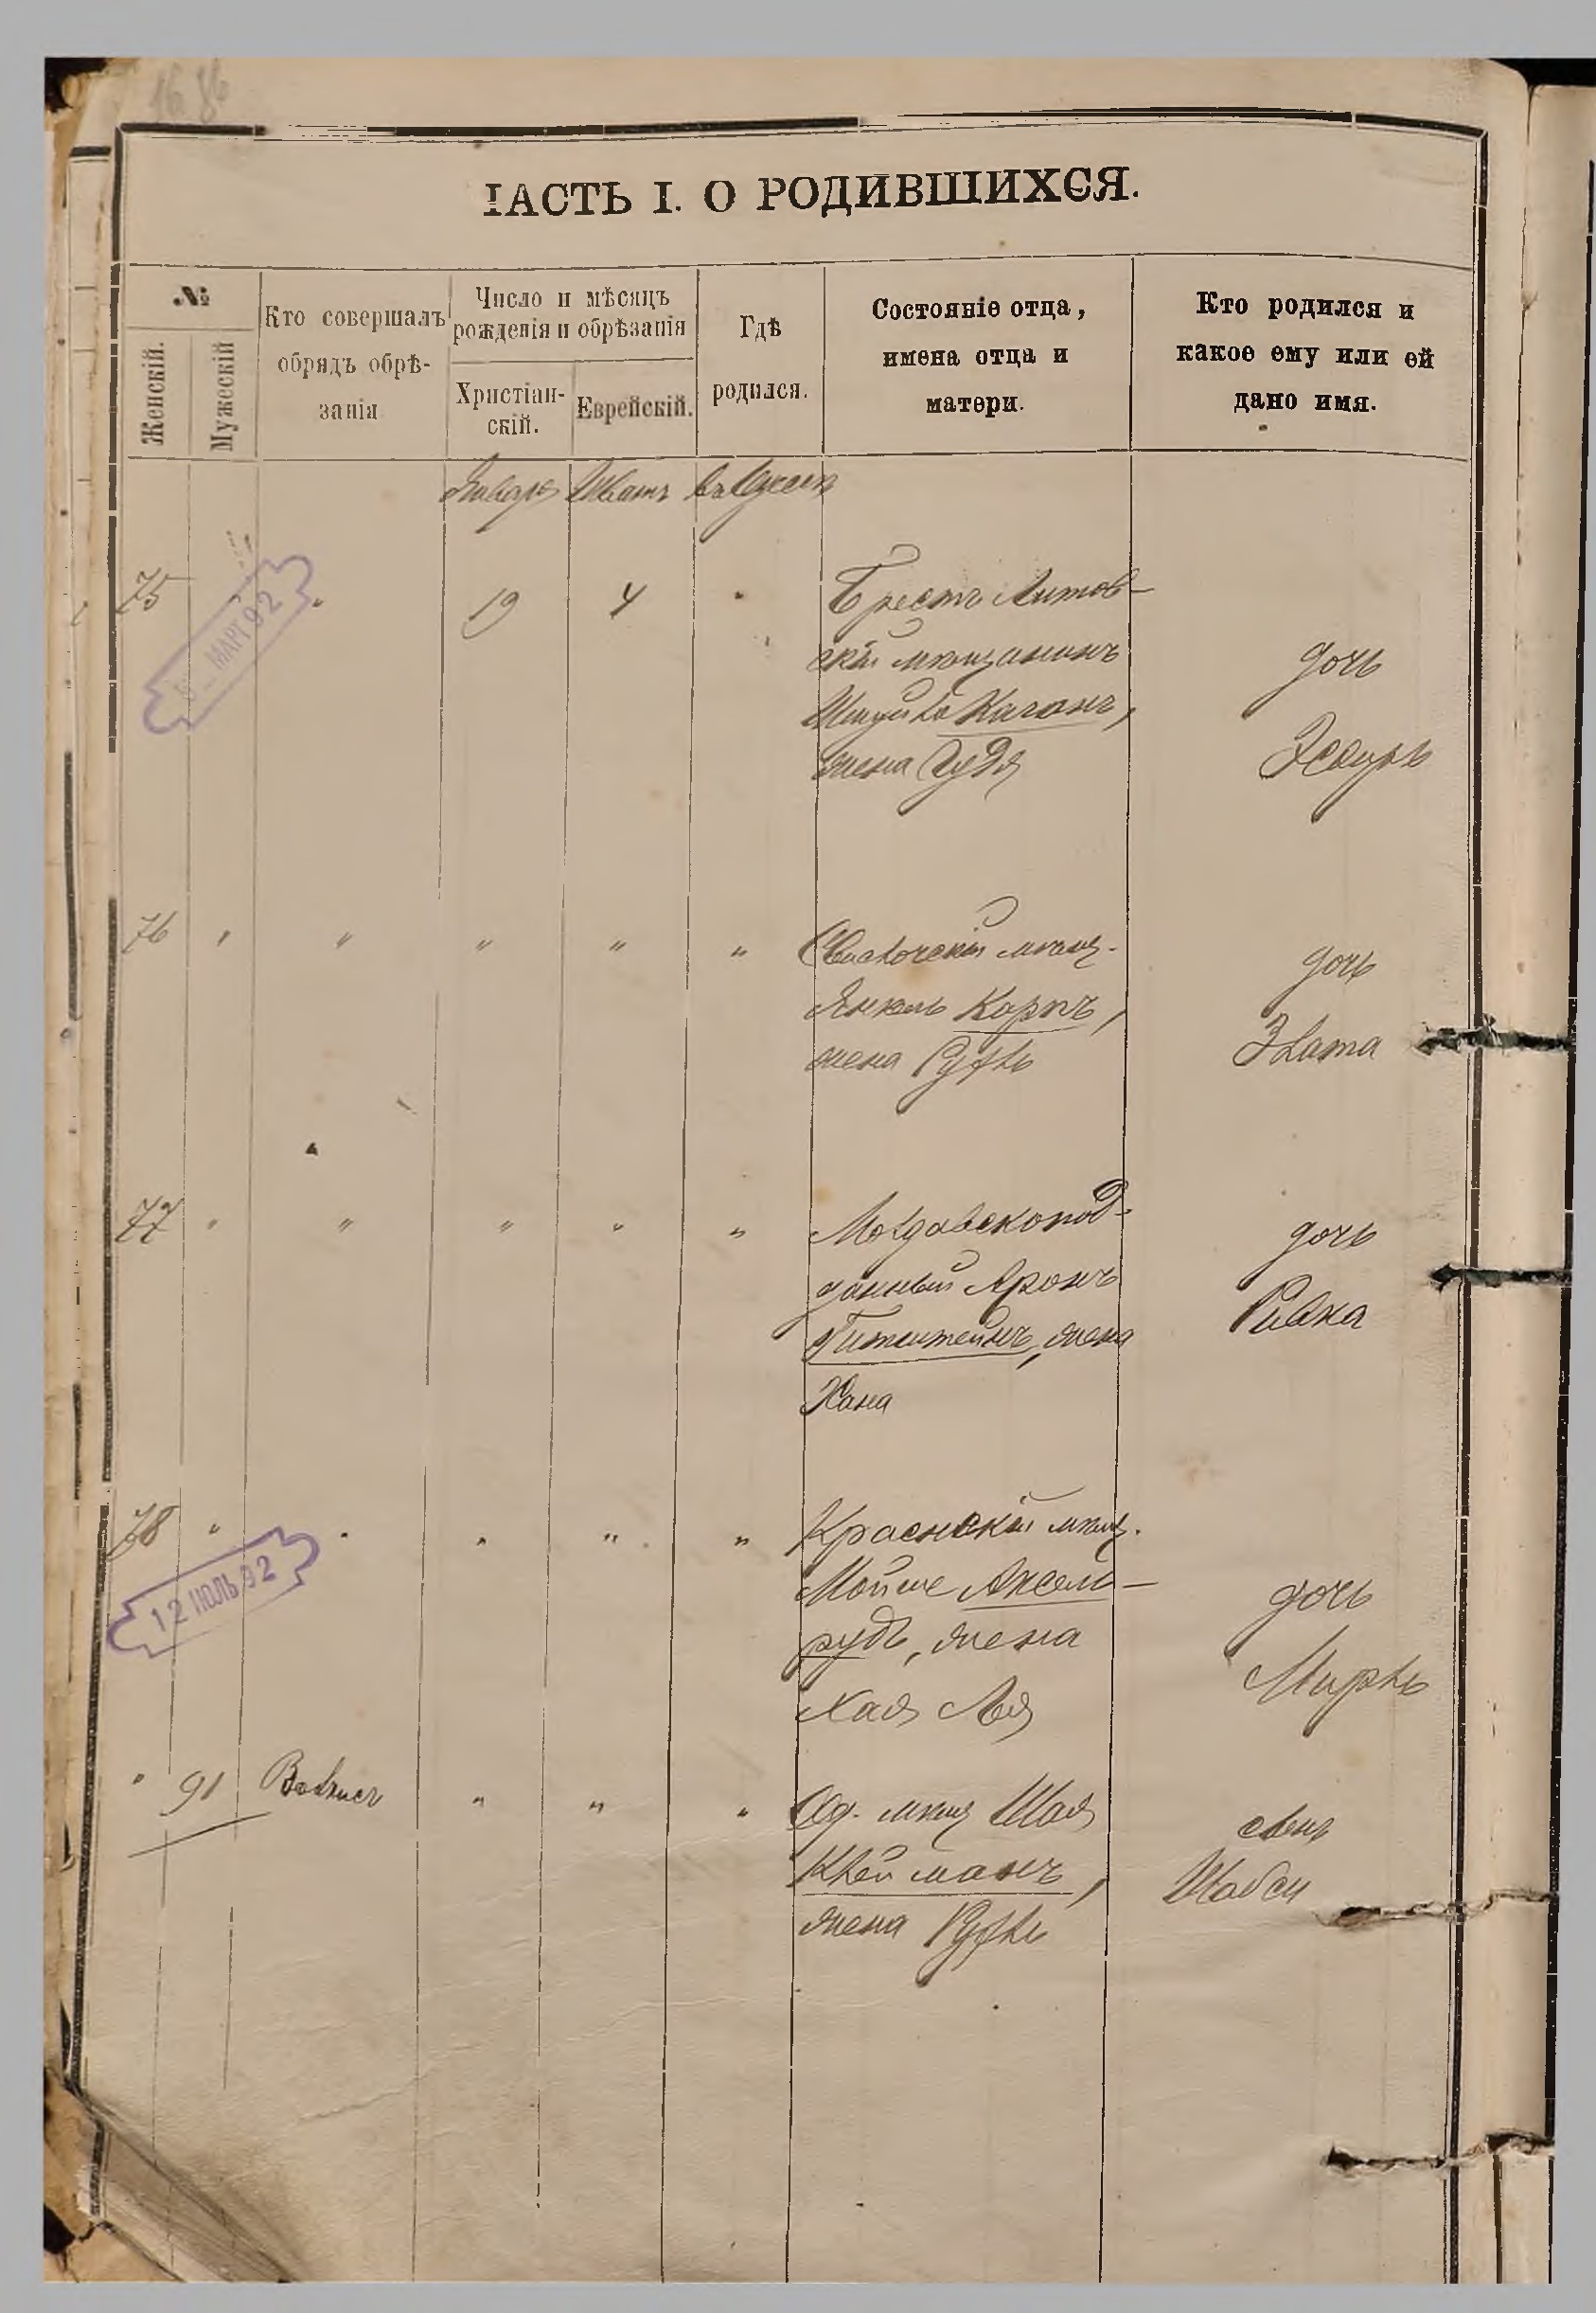 ЧАСТЬ I. О РОДИВШИХСЯ.
№
Женскій.
Мужескій
Кто совершалъ
обрядъ обрѣ-
занія
Число и мѣсяцъ
рожденія и обрѣзанія
Христіан-
скій.
Еврейскій.
Гдѣ
родился.
Состояніе отца,
имена отца и
матери.
Кто родился и
какое ему или ей
дано имя.
Январь Шватъ въ Одессѣ
75 " 19 4 "
МАРТ 92
Брестъ Литов-
скій мѣщанинъ
Каганъ,
жена Гудя
дочь
Эсѳирь
76 " " " " "
мѣщ.
Янкель Корпъ,
жена Рухль
дочь
Злата
77 " " " " "
Молдавскопод-
данный Аронъ
Гитштейнъ, жена
Хана
дочь
Ривка
78 " " " " "
12 ИЮЛЬ 92
Красненскій мѣщ.
Мойше Аксель-
рудъ, жена
Хая Лея
дочь
Мирль
" 91 " " "
Од. мѣщ Шая
Клейманъ,
жена Рухль
сынъ
Шабси